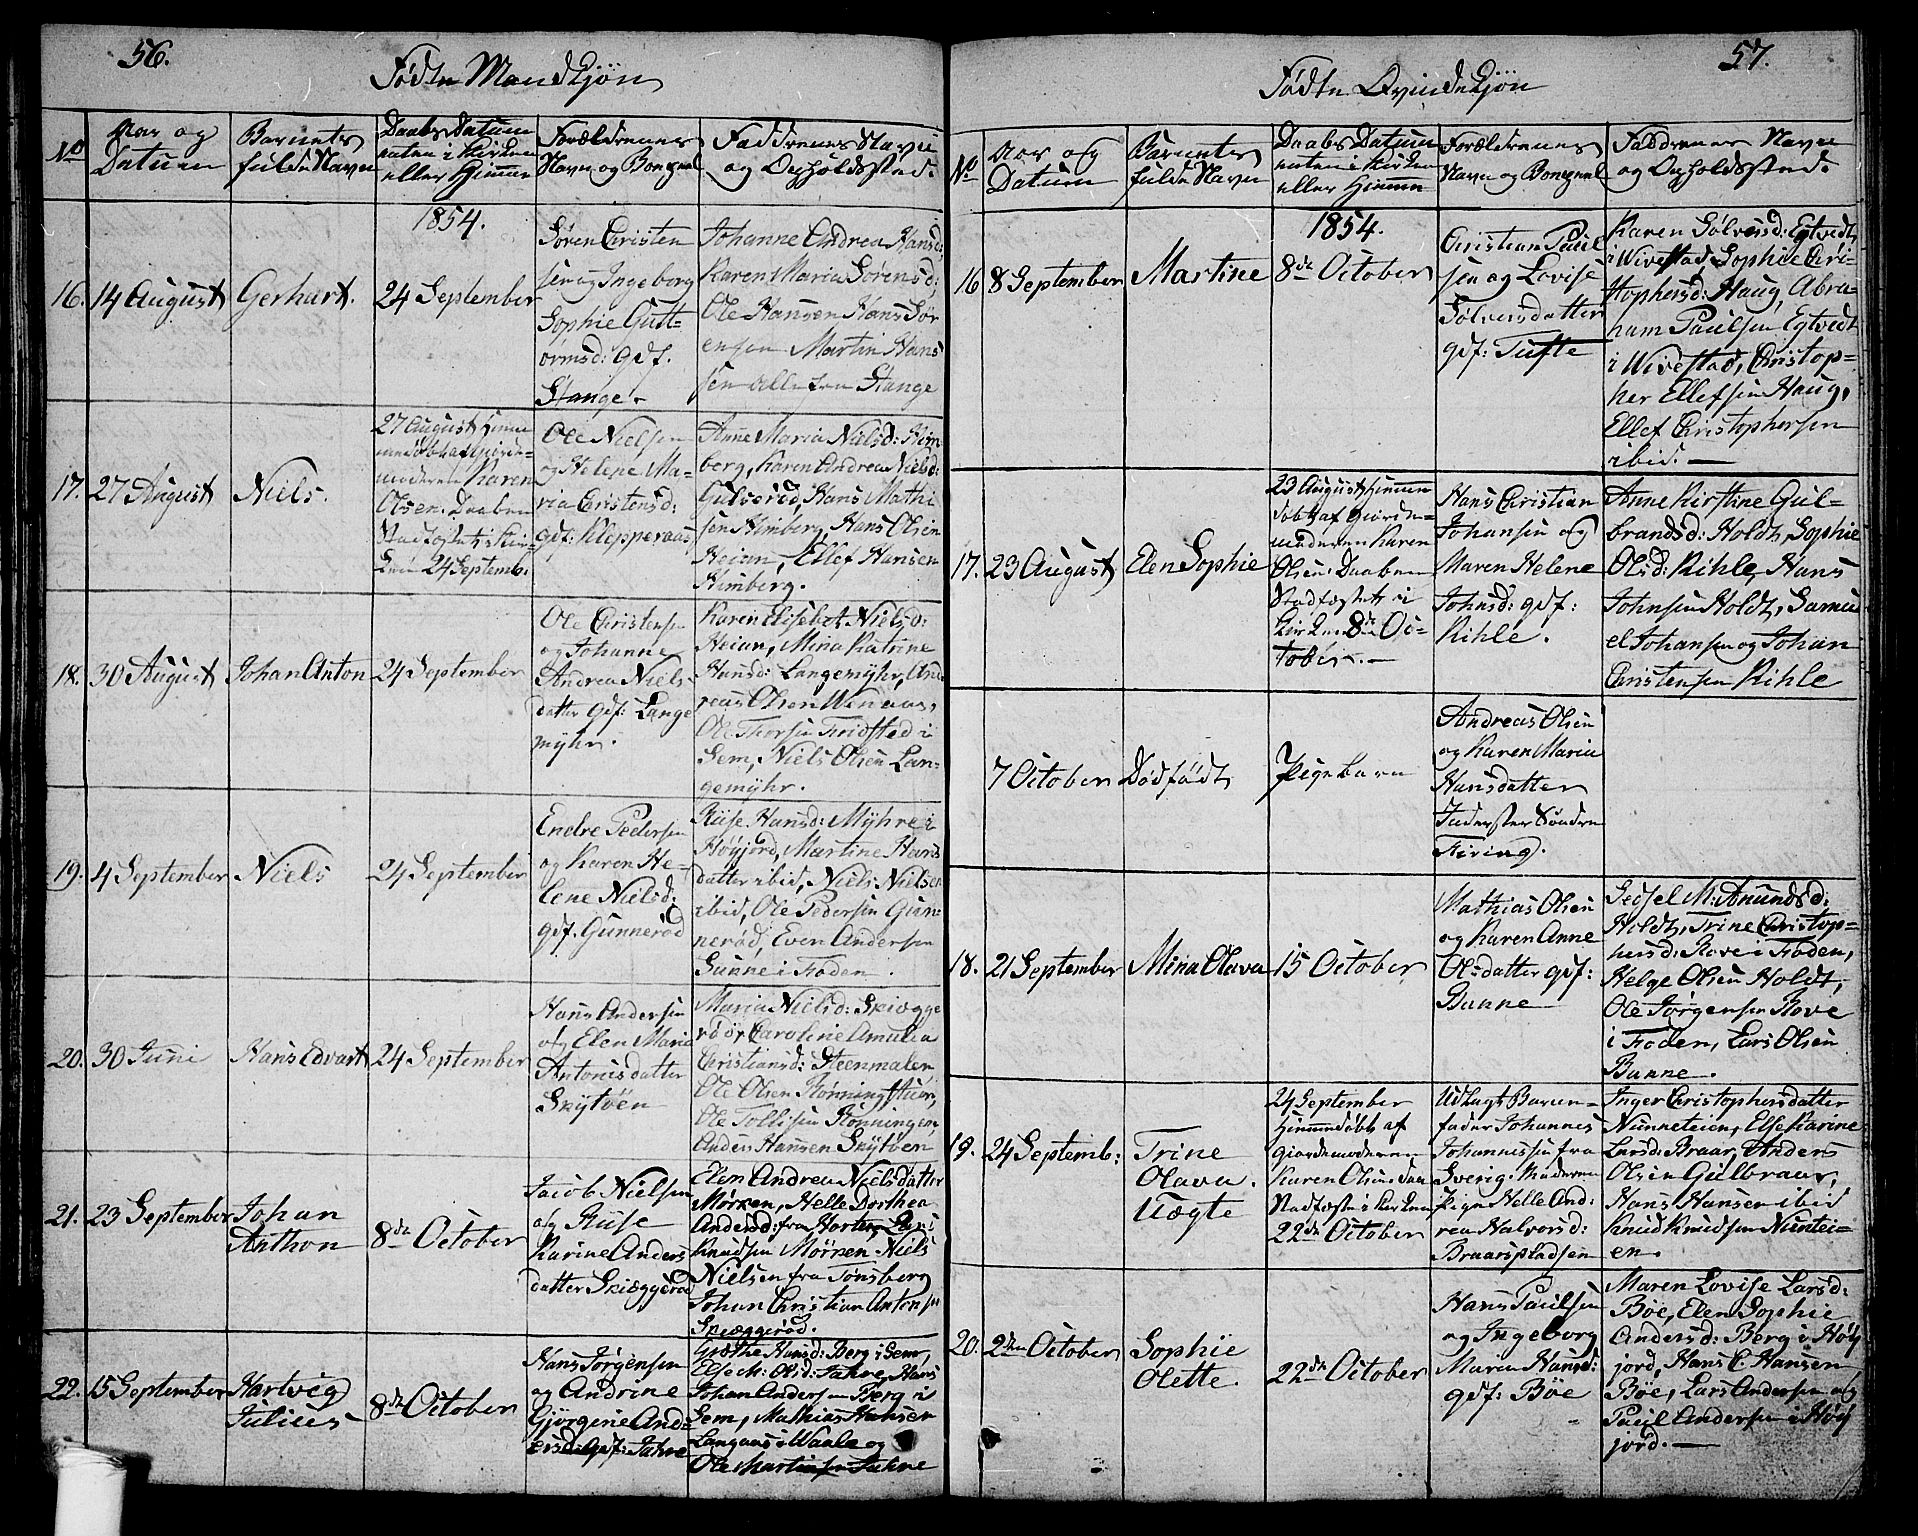 56.
Fødte Mandkjøn
No
Aar og
Datum
Barnets
fulde Navn
Daabs Datum
enten i Kirken
eller Hjemme
Forældrenes
Navn og Borgerl
Faddrenes Navn
og Opholdssted.
16.
14 August
Gerhart.
1854.
24 September
Søren Christen
sen og Ingeborg
Sophie Gutt-
ormsd: gdf.
Stange.
Johanne Andrea Hansd:
Karen Maria Sørensd:
Ole Hansen Hans Sør
ensen Martin Hans
sen alle fra Stange
17.
27 August
Niels.
27 August Hjemme
døbt af Gjorde-
moderen Karen
Olsen. Daaben
Stadfæstet i Kir
ken 24 Septemb.
Ole Nielsen
og Helene Ma-
ria Christensd:
gdf: Klepperaas
Anne Maria Nielsd: Him
berg, Karen Andrea Nielsd:
Gulserød, Hans Mathi
sen Himberg, Hans Olsen
Heian, Ellef Hansen
Himberg.
18.
30 August
Johan Anton
24 September
Ole Christensen
og Johanne
Andrea Niels
datter gdf: Lange
mÿhr.
Karen Elisebet Nielsd:
Heian, Mina Katrine
Hansd: Langemÿhr, And
reas Olsen Wenaas,
Ole Thorsen Fridsted i
Sem, Niels Olsen Lan-
gemÿhr.
19.
4 September
Niels
24 September
Endre Pedersen
og Karen He-
lene Nielsd:
gdf. Gunnerød
Mÿhre i
Høÿjord, Martine Hans
datter ibid, Niels Nielsen
ibid, Ole Pedersen Gun-
nerød, Even Andersen
Sunne i Foden.
20.
30 Juni
Hans Edvart
24 September
Hans Andersen
og Elen Maria
Antonisdatter
Skÿtøen
Maria Nielsd: Skiægge
rød, Caroline Amalia
Christiansd: Steenmalen
Ole Olsen Rønningstuen,
Ole Tollisen Rønningen,
Anders Hansen Skÿtøen
21.
23 September
Johan
Anthon
8de October
Jacob Nielsen
og
Karine Anders
datter Skiæggerød
Elen Andrea Nielsdatter
Mørken, Helle Dorthea
Andersd: fra Horten, Lars
Knudsen Mørken, Niels
Nielsen fra Tønsberg
Johan Christian Antonsen
Skiæggerød.
22.
15 September
Hartvig
Julius
8de October
Hans Jørgensen
og Andrine
Gjørgine And-
ersd: gdf: Jahre
Grethe Hansd: Berg i Sem,
Else M: Olsd: Jahre, Hans
Johan Andersen Berg i
Sem, Mathias Hansen
Langaas i Waale og
Ole Martinsen Jahre
57.
Fødte Qvindekjøn
No
Aar og
Datum
Barnets
fulde Navn
Daabs Datum
enten i Kirken
eller Hjemme
Forældrenes
Navn og Borgerl
Faddrenes Navn
og Opholdssted.
16
8 September
Martine
1854.
8de October
Christian Paul
sen og Lovise
Sølversdatter
gdf: Tufte
Karen Sølversd: Egtvedt
i Wivestad, Sophie Chri-
stophersd: Haug, Abra
ham Paulsen Egtvedt
i Wivestad, Christop-
her Ellefsen Haug,
Ellef Christophersen
ibid.
17.
23 August
Elen Sophie
23 August Hjemme
døbt af Gjorde-
moderen Karen
Olsen. Daaben
Stadfæstet i
Kirken 8de Oc-
tober.
Hans Christian
Johansen og
Maren Helene
Johnsd: gdf:
Kihle.
Anne Kirstine Gul-
brandsd: Holdt, Sophie
Olsd: Kihle, Hans
Johnsen Holdt, Samu
el Johansen og Johan
Christensen Kihle
7 October
Dødfødt
Pigebarn
Andreas Olsen
og Karen Maria
Hansdatter
Inderster Søndre
Firing.
18.
21 September
Mina Olava
15 October
Mathias Olsen
og Karen Anne
Olsdatter gdf:
Bunne
Sedsel M: Anundsd:
Holdt, Trine Christop-
hersd: Rove i Foden,
Helge Olsen Holdt,
Ole Jørgensen Rove
i Foden, Lars Olsen
Bunne.
19.
24 Septemb:
Trine
Olava.
Uægte
24 September
Hjemmedøbt af
gjordemoderen
Karen Olsen, Daa
Stadfæste i Kirken
22de October
Udlagt Barne-
fader Johannes
Johannessen fra
Sverig, Moderen
Pige Helle And
rea Halvorsd:
Braarspladsen
Inger Christophersdatter
Nunneteien, Else Karine
Larsd: Braar, Anders
Olsen Gulbraar,
Hans Hansen ibid
Knud Knudsen Nuntei-
en.
20.
2den October
Sophie
Olette.
22de October
Hans Paulsen
og Ingeborg
Maria Hansd:
gdf: Bøe
Maren Lovise Larsd:
Bøe, Elen Sophie
Andersd: Berg i Høÿ
jord, Hans C. Hansen
Bøe, Lars Andersen og
Paul Andersen i Høÿ
jord.